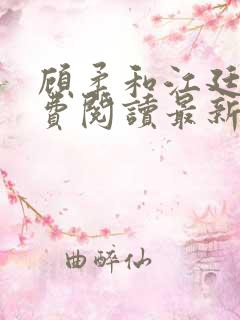 顾柔和江廷
费閱讀最新
曲醉仙